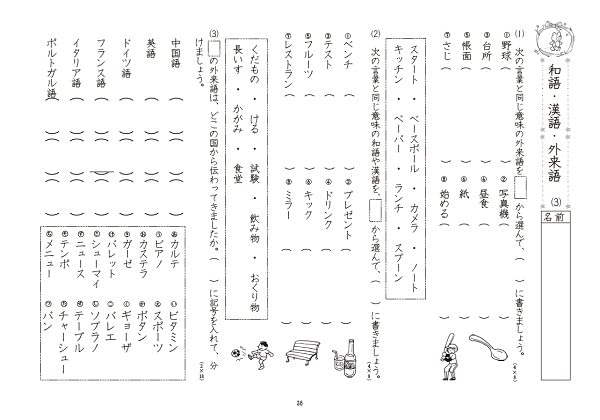 和語・漢語・外来語 (3)
名前
(1) 次の言葉と同じ意味の外来語を□から選んで、( )に書きましょう。
① 野球 ( )
② 写真機 ( )
③ 台所 ( )
④ 昼食 ( )
⑤ 帳面 ( )
⑥ 紙 ( )
⑦ さじ ( )
⑧ 始める ( )
スタート ・ ベースボール ・ カメラ ・ ノート
キッチン ・ ペーパー ・ ランチ ・ スプーン
(2) 次の言葉と同じ意味の和語や漢語を、□から選んで、( )に書きましょう。
① ベンチ ( )
② プレゼント ( )
③ テスト ( )
④ ドリンク ( )
⑤ フルーツ ( )
⑥ キック ( )
⑦ レストラン ( )
⑧ ミラー ( )
くだもの ・ ける ・ 試験 ・ 飲み物 ・ おくり物
長いす ・ かがみ ・ 食堂
(3) □の外来語は、どこの国から伝わってきましたか。( )に記号を入れて、分
けましょう。
中国語 ( ) ( ) ( ) ( )
英語 ( ) ( ) ( ) ( )
ドイツ語 ( ) ( ) ( ) ( )
フランス語 ( ) ( ) ( ) ( )
イタリア語 ( ) ( ) ( ) ( )
ポルトガル語 ( ) ( ) ( ) ( )
カルテ
ビタミン
ピアノ
スポーツ
カステラ
ボタン
ガーゼ
ギョーザ
バレット
バレエ
シューマイ
ソプラノ
ニュース
テーブル
テンポ
チャーシュー
メニュー
パン
36